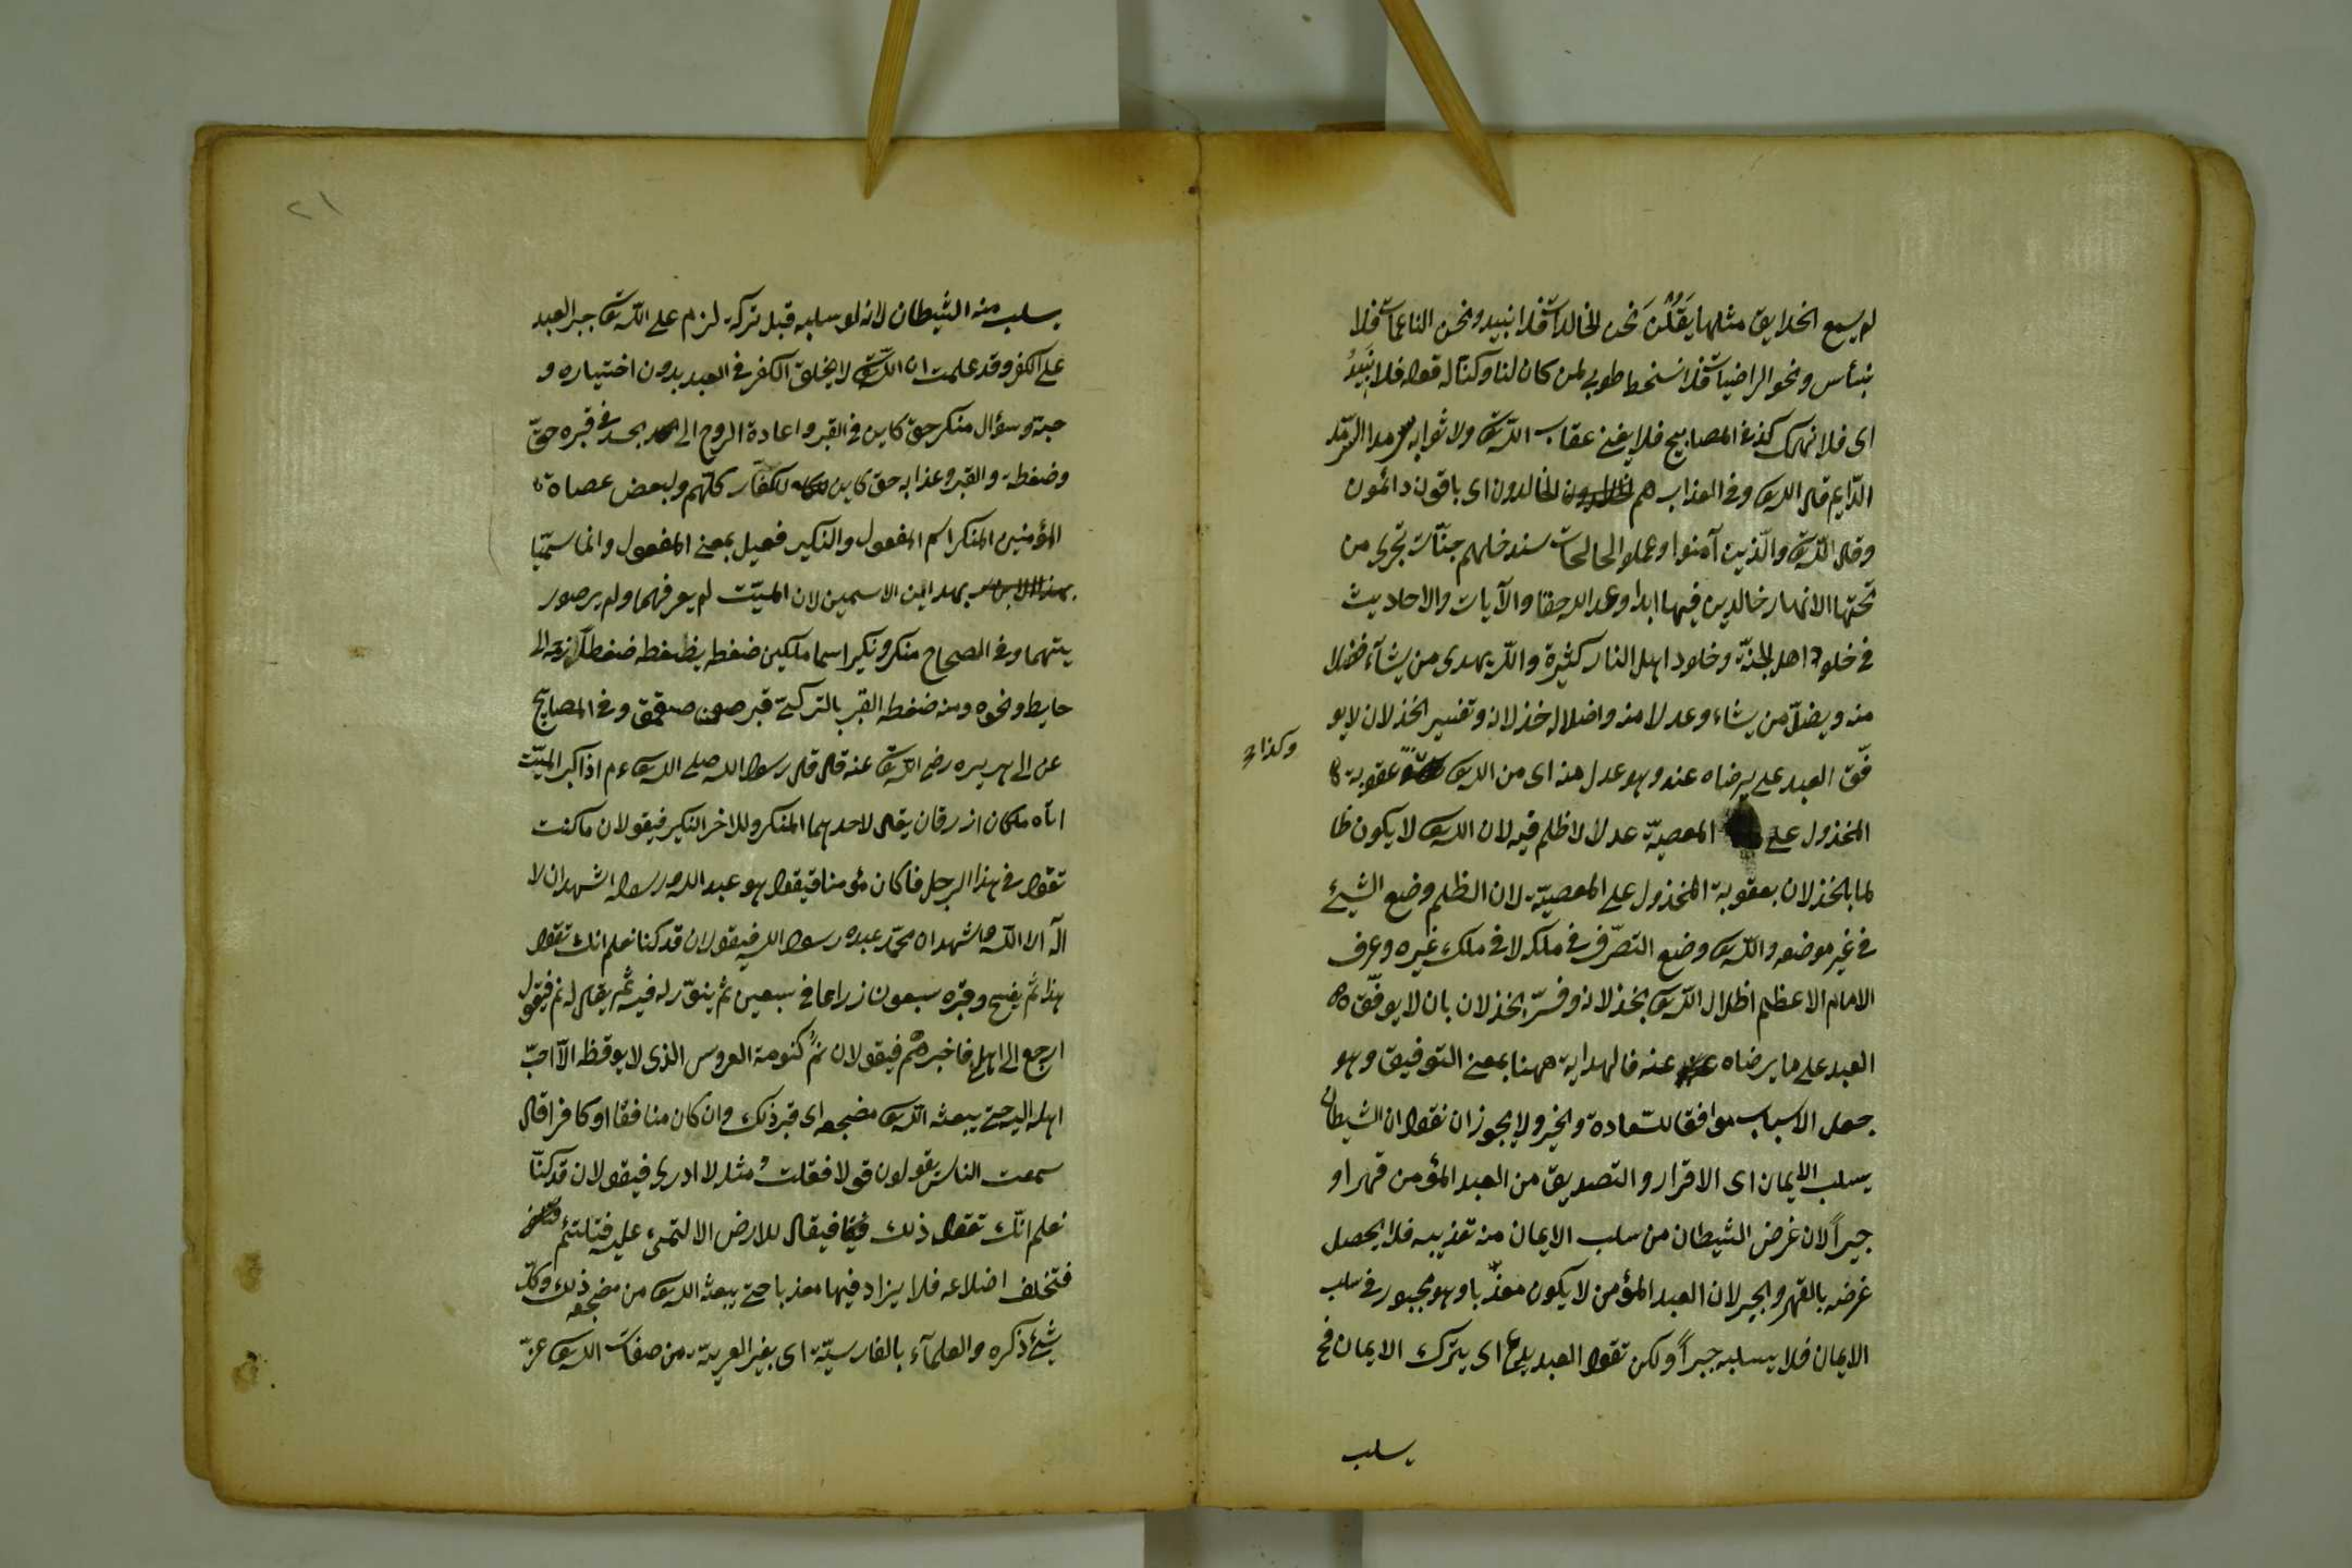 لم يسمع الخلايق مثلها يقلن نحن الخالدات فلا نبيد ونحن الناعمات فلا
نبأس ونحو الراضيات فلا نسخط طوبى لمن كان لنا وكنا له قوله فلا نبيد
اى فلا نهلك كذا فى المصابيح فلا يفنى عقاب الله تع ولا ثوابه سرمدا السرمد
الدايم قال الله تع وفى العذاب هم الخالدون اى باقون دائمون
وقال الله تع والذين آمنوا وعملوا الصالحات سندخلهم جنات تجرى من
تحتها الانهار خالدين فيها ابدا وعد الله حقا والآيات والاحاديث
فى خلود اهل الجنة وخلود اهل النار كثيرة والله يهدى من يشآء فضلا
منه ويضل من يشاء وعدلا منه واضلاله خذلانه وتفسير الخذلان لا يو
فق العبد على يرضاه عند وهو عدل منه اى من الله تع عقوبة
وكذا
المخذول على المعصية عدلا لا ظلم فيه لان الله تع لا يكون ظا
لما بالخذلان بعقوبة المخذول على المعصية لان الظلم وضع الشيئ
فى غير موضعه والله تع وضع التصرف فى ملكه لا فى ملك غيره وعرف
الامام الاعظم اظلال الله تع بخذلانه وفسر الخذلان بان لا يوفق
العبد على ما يرضاه عنه فالهداية ههنا بمعنى التوفيق وهو
جعل الاسباب موافقا للسعادة والخير ولا يجوز ان نقول ان الشيطان
يسلب الايمان اى الاقرار والتصديق من العبد المؤمن قهرا و
جبراً لان غرض الشيطان من سلب الايمان منه تعذيبه فلا يحصل
غرضه بالقهر والجبر لان العبد المؤمن لا يكون معذبا وهو مجبور فى سلب
الايمان فلا يسلبه جبراً ولكن تقول العبد يدع اى يترك الايمان فح
يسلب
٢١
يسلب منه الشيطان لانه لو سلبه قبل تركه لزم على الله تع جبر العبد
على الكفر وقد علمت ان الله تع لا يخلق الكفر فى العبد بدون اختياره و
حبه وسؤال منكر حق كاين فى القبر واعادة الروح الى الجسد فى قبره حق
وضغطة والقبر وعذابه حق كاين للكفار كلهم ولبعض عصاة
المؤمنين المنكر اسم المفعول والنكير فعيل بمعنى المفعول وانما سميا
بهذاين الاسمين لان الميت لم يعرفهما ولم ير صور
يتهما وفى الصحاح منكر ونكير اسما ملكين ضغطه يضغطه ضغطا زحمه الى
حايط ونحوه ومنه ضغطة القبر بالتركية قبر صقمق وفى المصابيح
عن ابى هريره رضى الله تع عنه قال قال رسول الله صلى الله تع ءم اذا اكبر الميت
اتاه ملكان ازرقان يقال لاحدهما المنكر وللاخر النكير فيقولان ما كنت
تقول فى هذا الرجل فا كان مؤمنا فيقول هو عبد الله ورسوله اشهد ان لا
اله الا الله واشهد ان محمد عبده رسول الله فيقولان قد كنا نعلم انك تقول
هذا ثم يفسح وقبره سبعون زراعا فى سبعين ثم ينور له فيه ثم يقال له نم فيقول
ارجع الى اهلى فاخبرهم فيقولان نم كنومة العروس الذى لا يوقظه الا احب
اهله اليه حتى يبعثه الله تع مضجعه اى قبر ذلك وان كان منافقا او كافرا قال
سمعت الناس يقولون قولا فقلت مثله لا ادرى فيقولان قد كنا
نعلم انك تقول ذلك فيقال للارض التئمى عليه فتلتئم
فتختلف اضلاعه فلا يزاد فيها معذبا حتى يبعثه الله تع من مضجعه ذلك وكل
شيئ ذكره والعلمآء بالفارسية اى بغير العربية من صفات الله تع عز